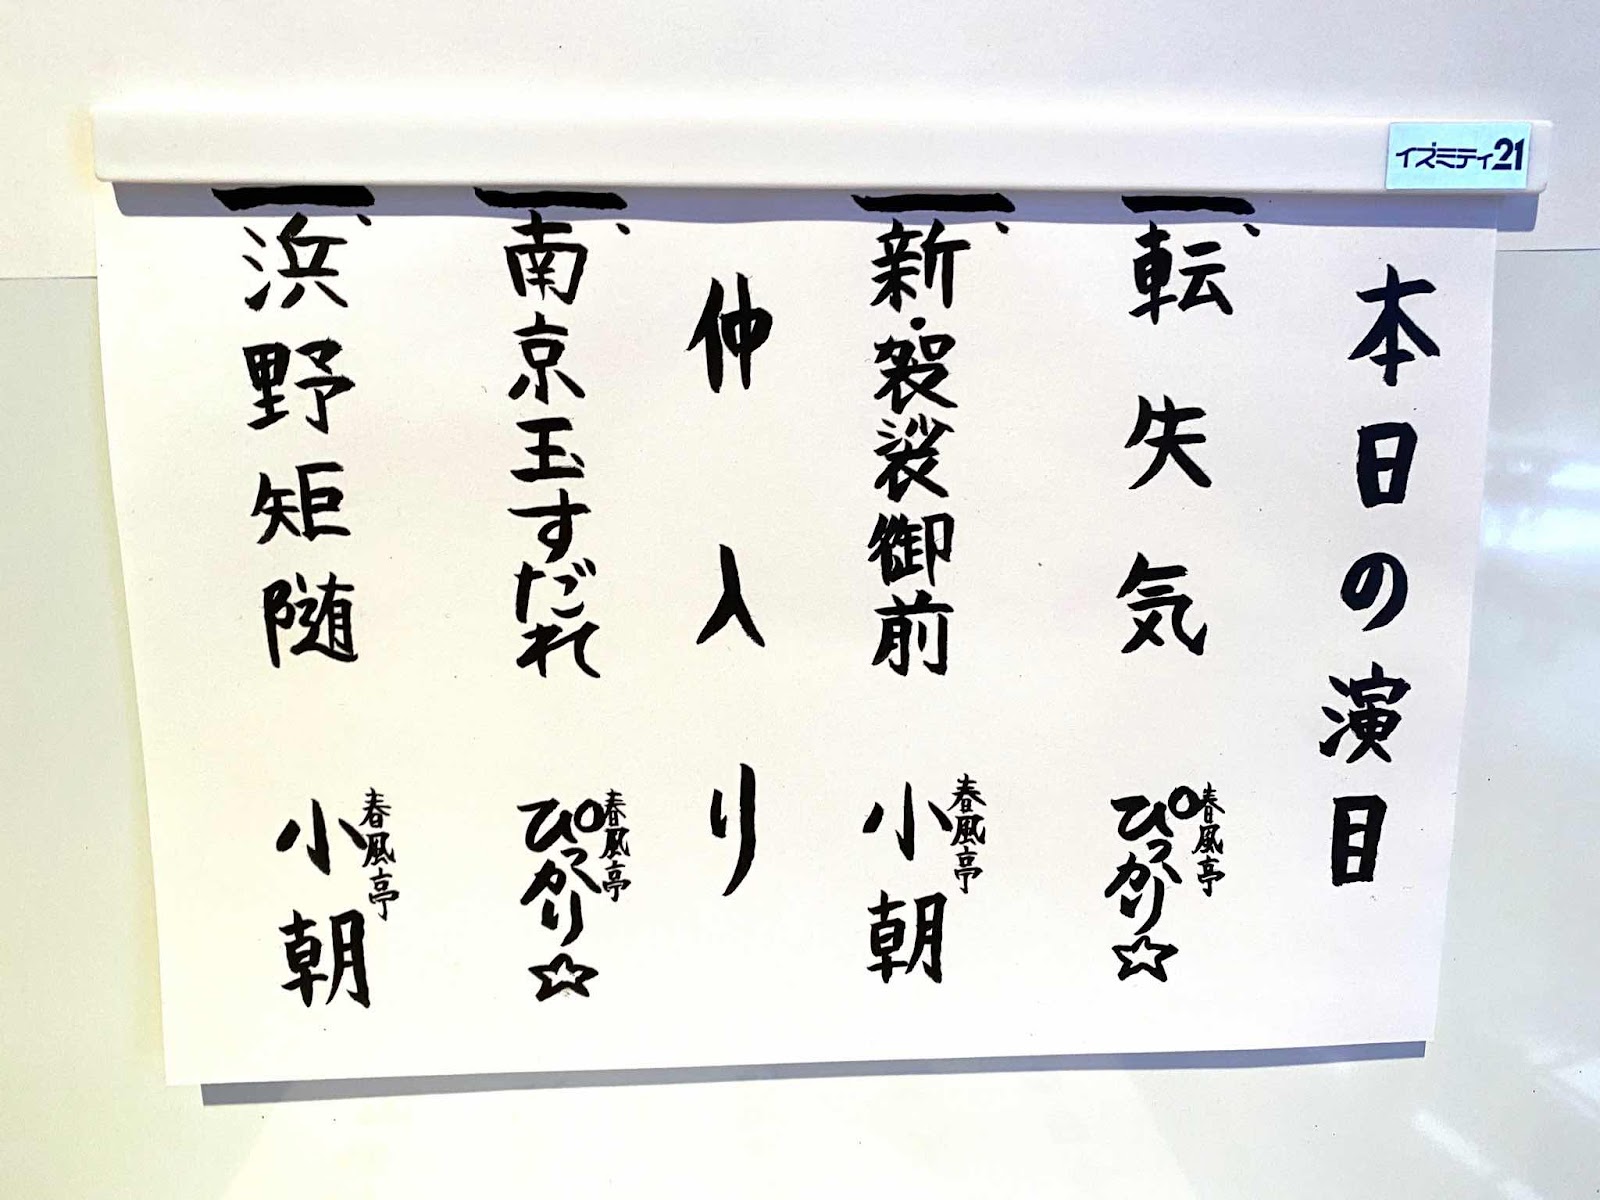 イズミティ21
本日の演目
一、転失気 春風亭 ぴっかり☆
一、新・袈裟御前 春風亭 小朝
仲入り
一、南京玉すだれ 春風亭 ぴっかり☆
一、浜野矩随 春風亭 小朝